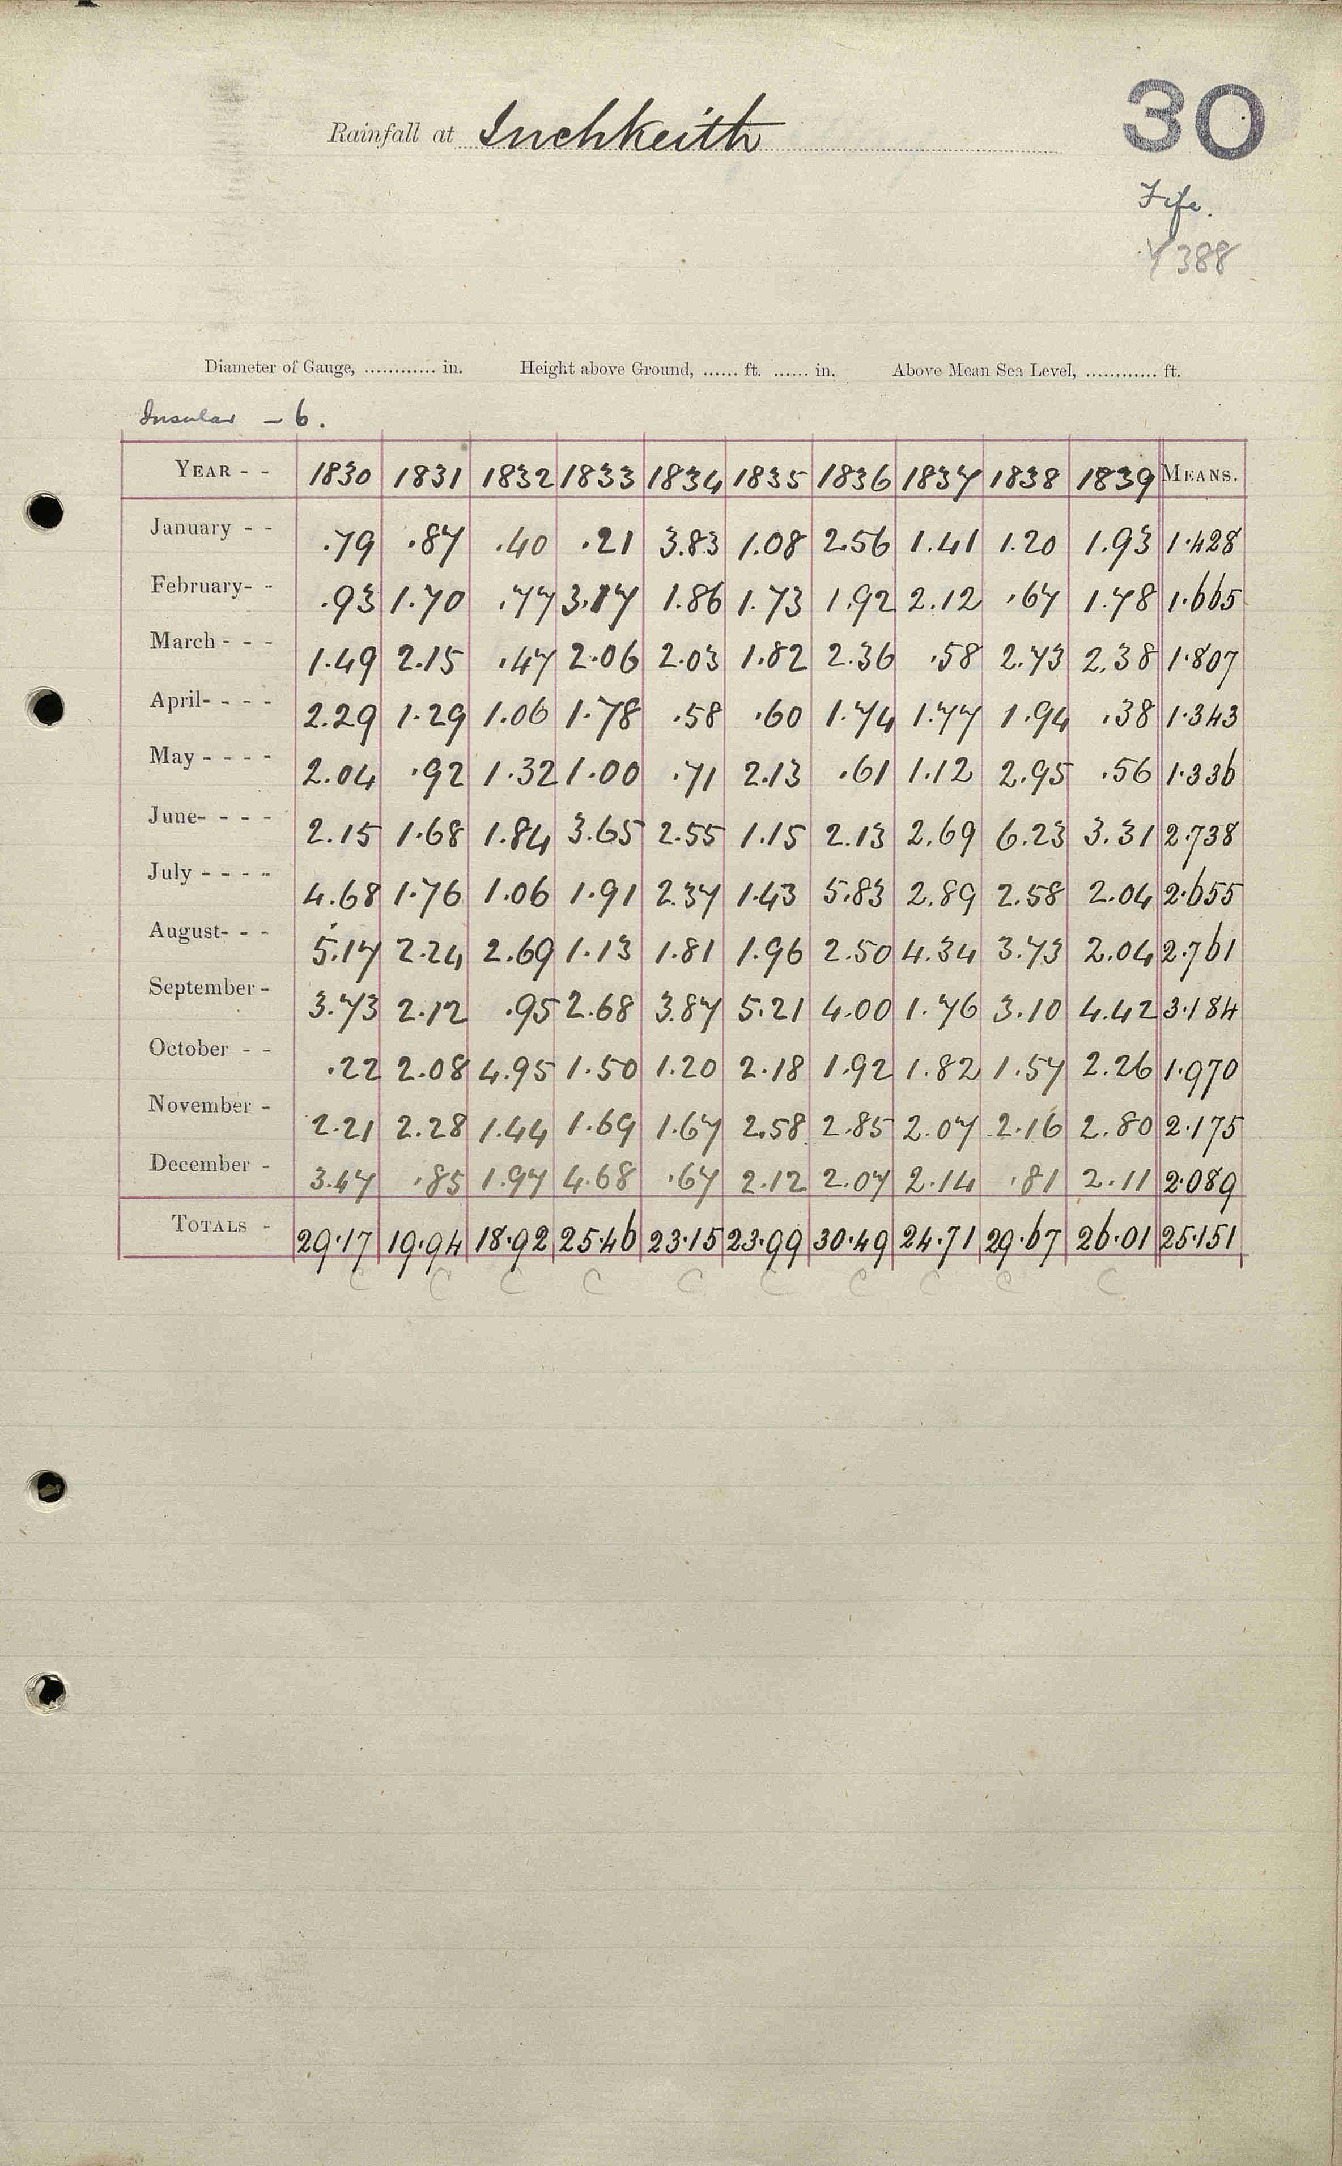 30
Rainfall at Inchkeith
Fife.
Y388
Diameter of Gauge, ............ in. Height above Ground, ...... ft. ...... in. Above Mean Sea Level, ............ ft.
Insular - 6.
YEAR - - 1830 1831 1832 1833 1834 1835 1836 1837 1838 1839 MEANS.
January - - .79 .87 .40 .21 3.83 1.08 2.56 1.41 1.20 1.93 1.428
February- - .93 1.70 .77 3.87 1.86 1.73 1.92 2.12 .67 1.78 1.665
March - - - 1.49 2.15 .47 2.06 2.03 1.82 2.36 .58 2.73 2.38 1.807
April- - - - 2.29 1.29 1.06 1.78 .58 .60 1.74 1.77 1.94 .38 1.343
May - - - - 2.04 .92 1.32 1.00 .71 2.13 .61 1.12 2.95 .56 1.336
June- - - - 2.15 1.68 1.84 3.65 2.55 1.15 2.13 2.69 6.23 3.31 2.738
July - - - - 4.68 1.76 1.06 1.91 2.37 1.43 5.83 2.89 2.58 2.04 2.655
August- - - 5.17 2.24 2.69 1.13 1.81 1.96 2.50 4.34 3.73 2.04 2.761
September - 3.73 2.12 .95 2.68 3.87 5.21 4.00 1.76 3.10 4.42 3.184
October - - .22 2.08 4.95 1.50 1.20 2.18 1.92 1.82 1.57 2.26 1.970
November - 2.21 2.28 1.44 1.69 1.67 2.58 2.85 2.07 2.16 2.80 2.175
December - 3.47 .85 1.97 4.68 .67 2.12 2.07 2.14 .81 2.11 2.089
TOTALS - 29.17 19.94 18.92 25.46 23.15 23.99 30.49 24.71 29.67 26.01 25.151
C C C C C C C C C C